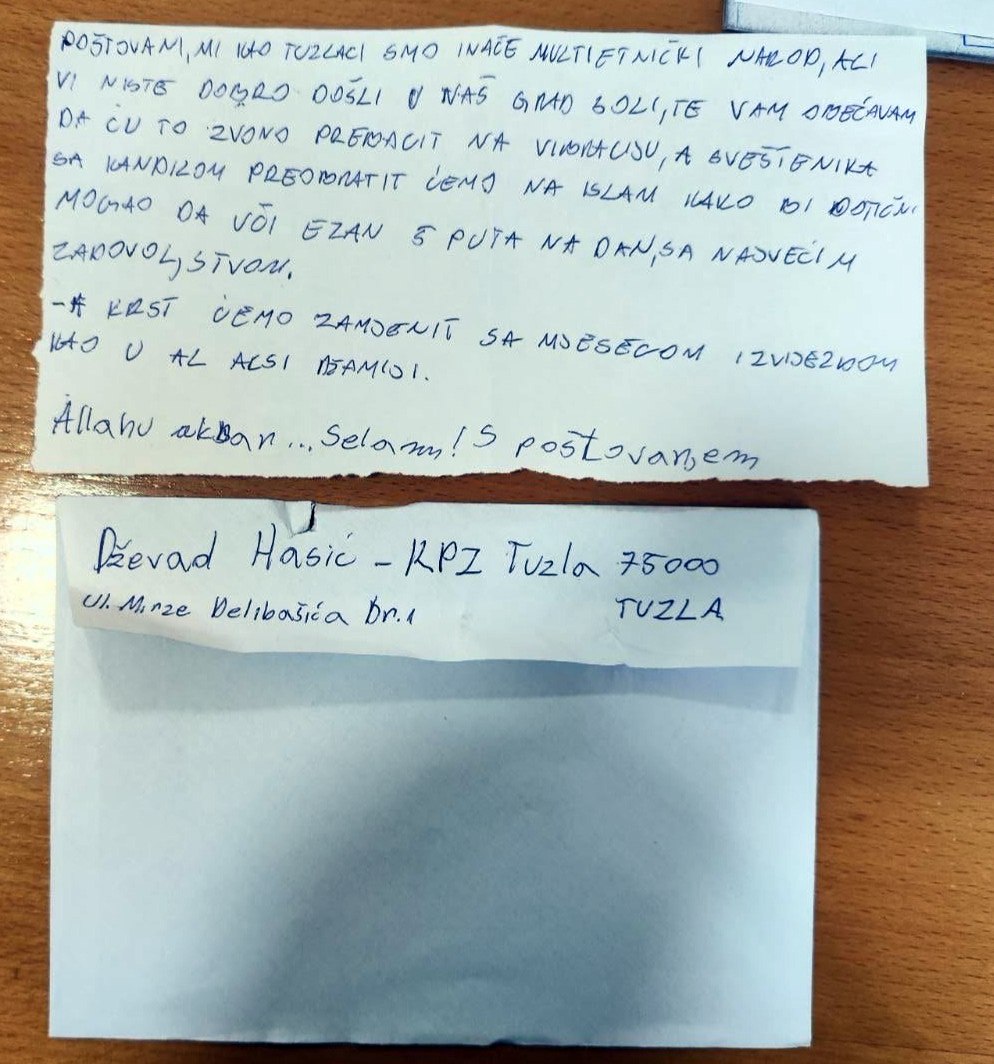 POŠTOVANI, MI KAO TUZLACI SMO INAČE MULTIETNIČKI NAROD, ALI
VI NISTE DOBRO DOŠLI U NAŠ GRAD SOLI, TE VAM OBEĆAVAM
DA ĆU TO ZVONO PREBACIT NA VIBRACIJU, A SVEŠTENIKA
SA KANDILOM PREOBRATIT ĆEMO NA ISLAM KAKO BI DOTIČNI
MOGAO DA UČI EZAN 5 PUTA NA DAN, SA NAJVEĆIM
ZADOVOLJSTVOM.
-A KRST ĆEMO ZAMJENIT SA MJESECOM I ZVIJEZDOM
KAO U AL AKSI DŽAMIJI.
Allahu akbar... Selam! S poštovanjem
Dževad Hasić - KPZ Tuzla 75000
Ul. Mirze Delibašića Br.1 TUZLA